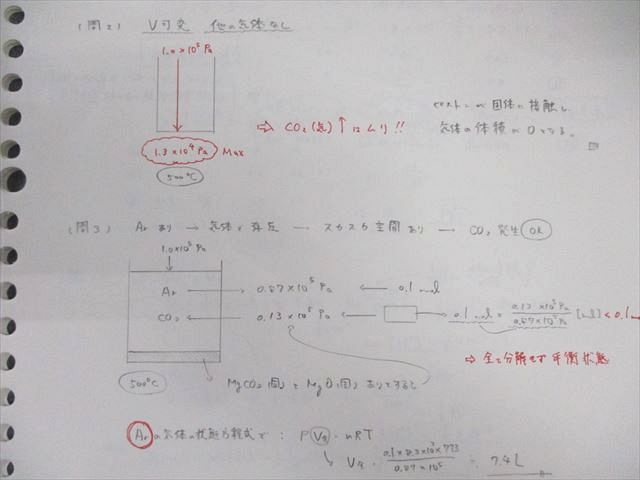 (問2) V可変 他の気体なし
1.0×10⁵Pa
⇒ CO₂(気)↑はムリ!!
ピストンが固体に接触し、
気体の体積が0となる。
1.3×10⁴Pa Max
500℃
(問3) Arあり → 気体で存在 → スカスカ空間あり → CO₂発生OK
1.0×10⁵Pa
Ar → 0.87×10⁵Pa ← 0.1mol
CO₂ → 0.13×10⁵Pa ← □ → 0.1mol × 0.13×10⁵Pa / 0.87×10⁵Pa [mol] < 0.1m
⇒ 全て分解せず平衡状態
500℃
MgCO₃(固)とMgO(固)ありとすると
Arの気体の状態方程式で: PV気=nRT
V気= 0.1×8.3×10³×773 / 0.87×10⁵ ≒ 7.4L